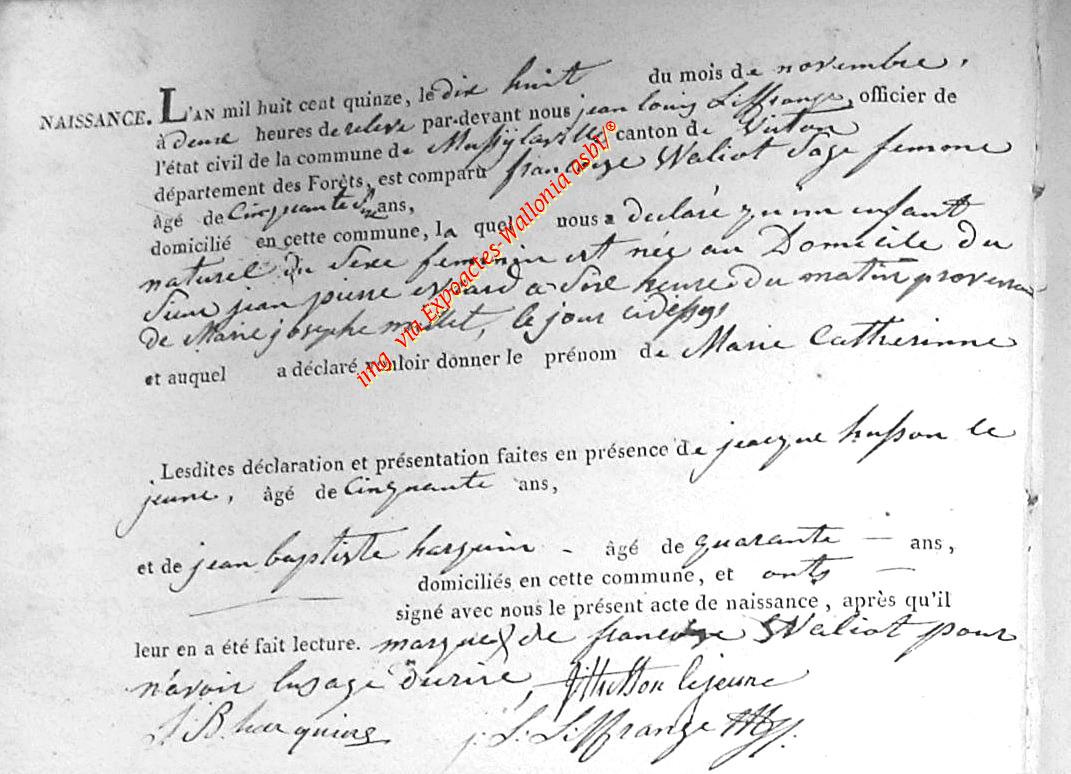 NAISSANCE. L'AN mil huit cent quinze, le dix huit du mois de novembre,
à deux heures de relevé par-devant nous jean louis Liffrange, officier de
l'état civil de la commune de Mussylaville canton de Virton
département des Forêts, est comparu françoise Waliot Sage femme
âgé de Cinquante Six ans,
domicilié en cette commune, la quel nous a declaré qu'un enfant
naturel du Sexe feminin est née au Domicile du
Sieur jean pierre a heure du matin provenan
de Marie josephe millet, le jour cidessus
et auquel a déclaré vouloir donner le prénom de Marie Catherinne
Lesdites déclaration et présentation faites en présence de jeacque husson le
jeune, âgé de Cinquante ans,
et de jean baptiste harquin - âgé de quarante — ans,
domiciliés en cette commune, et onts —
signé avec nous le présent acte de naissance, après qu'il
leur en a été fait lecture. marque de francoise Waliot pour
n'avoir lusage décrire, husson lejeune
J. B. harquin j. L. Liffrange
img via Expoactes-Wallonia asbl/®